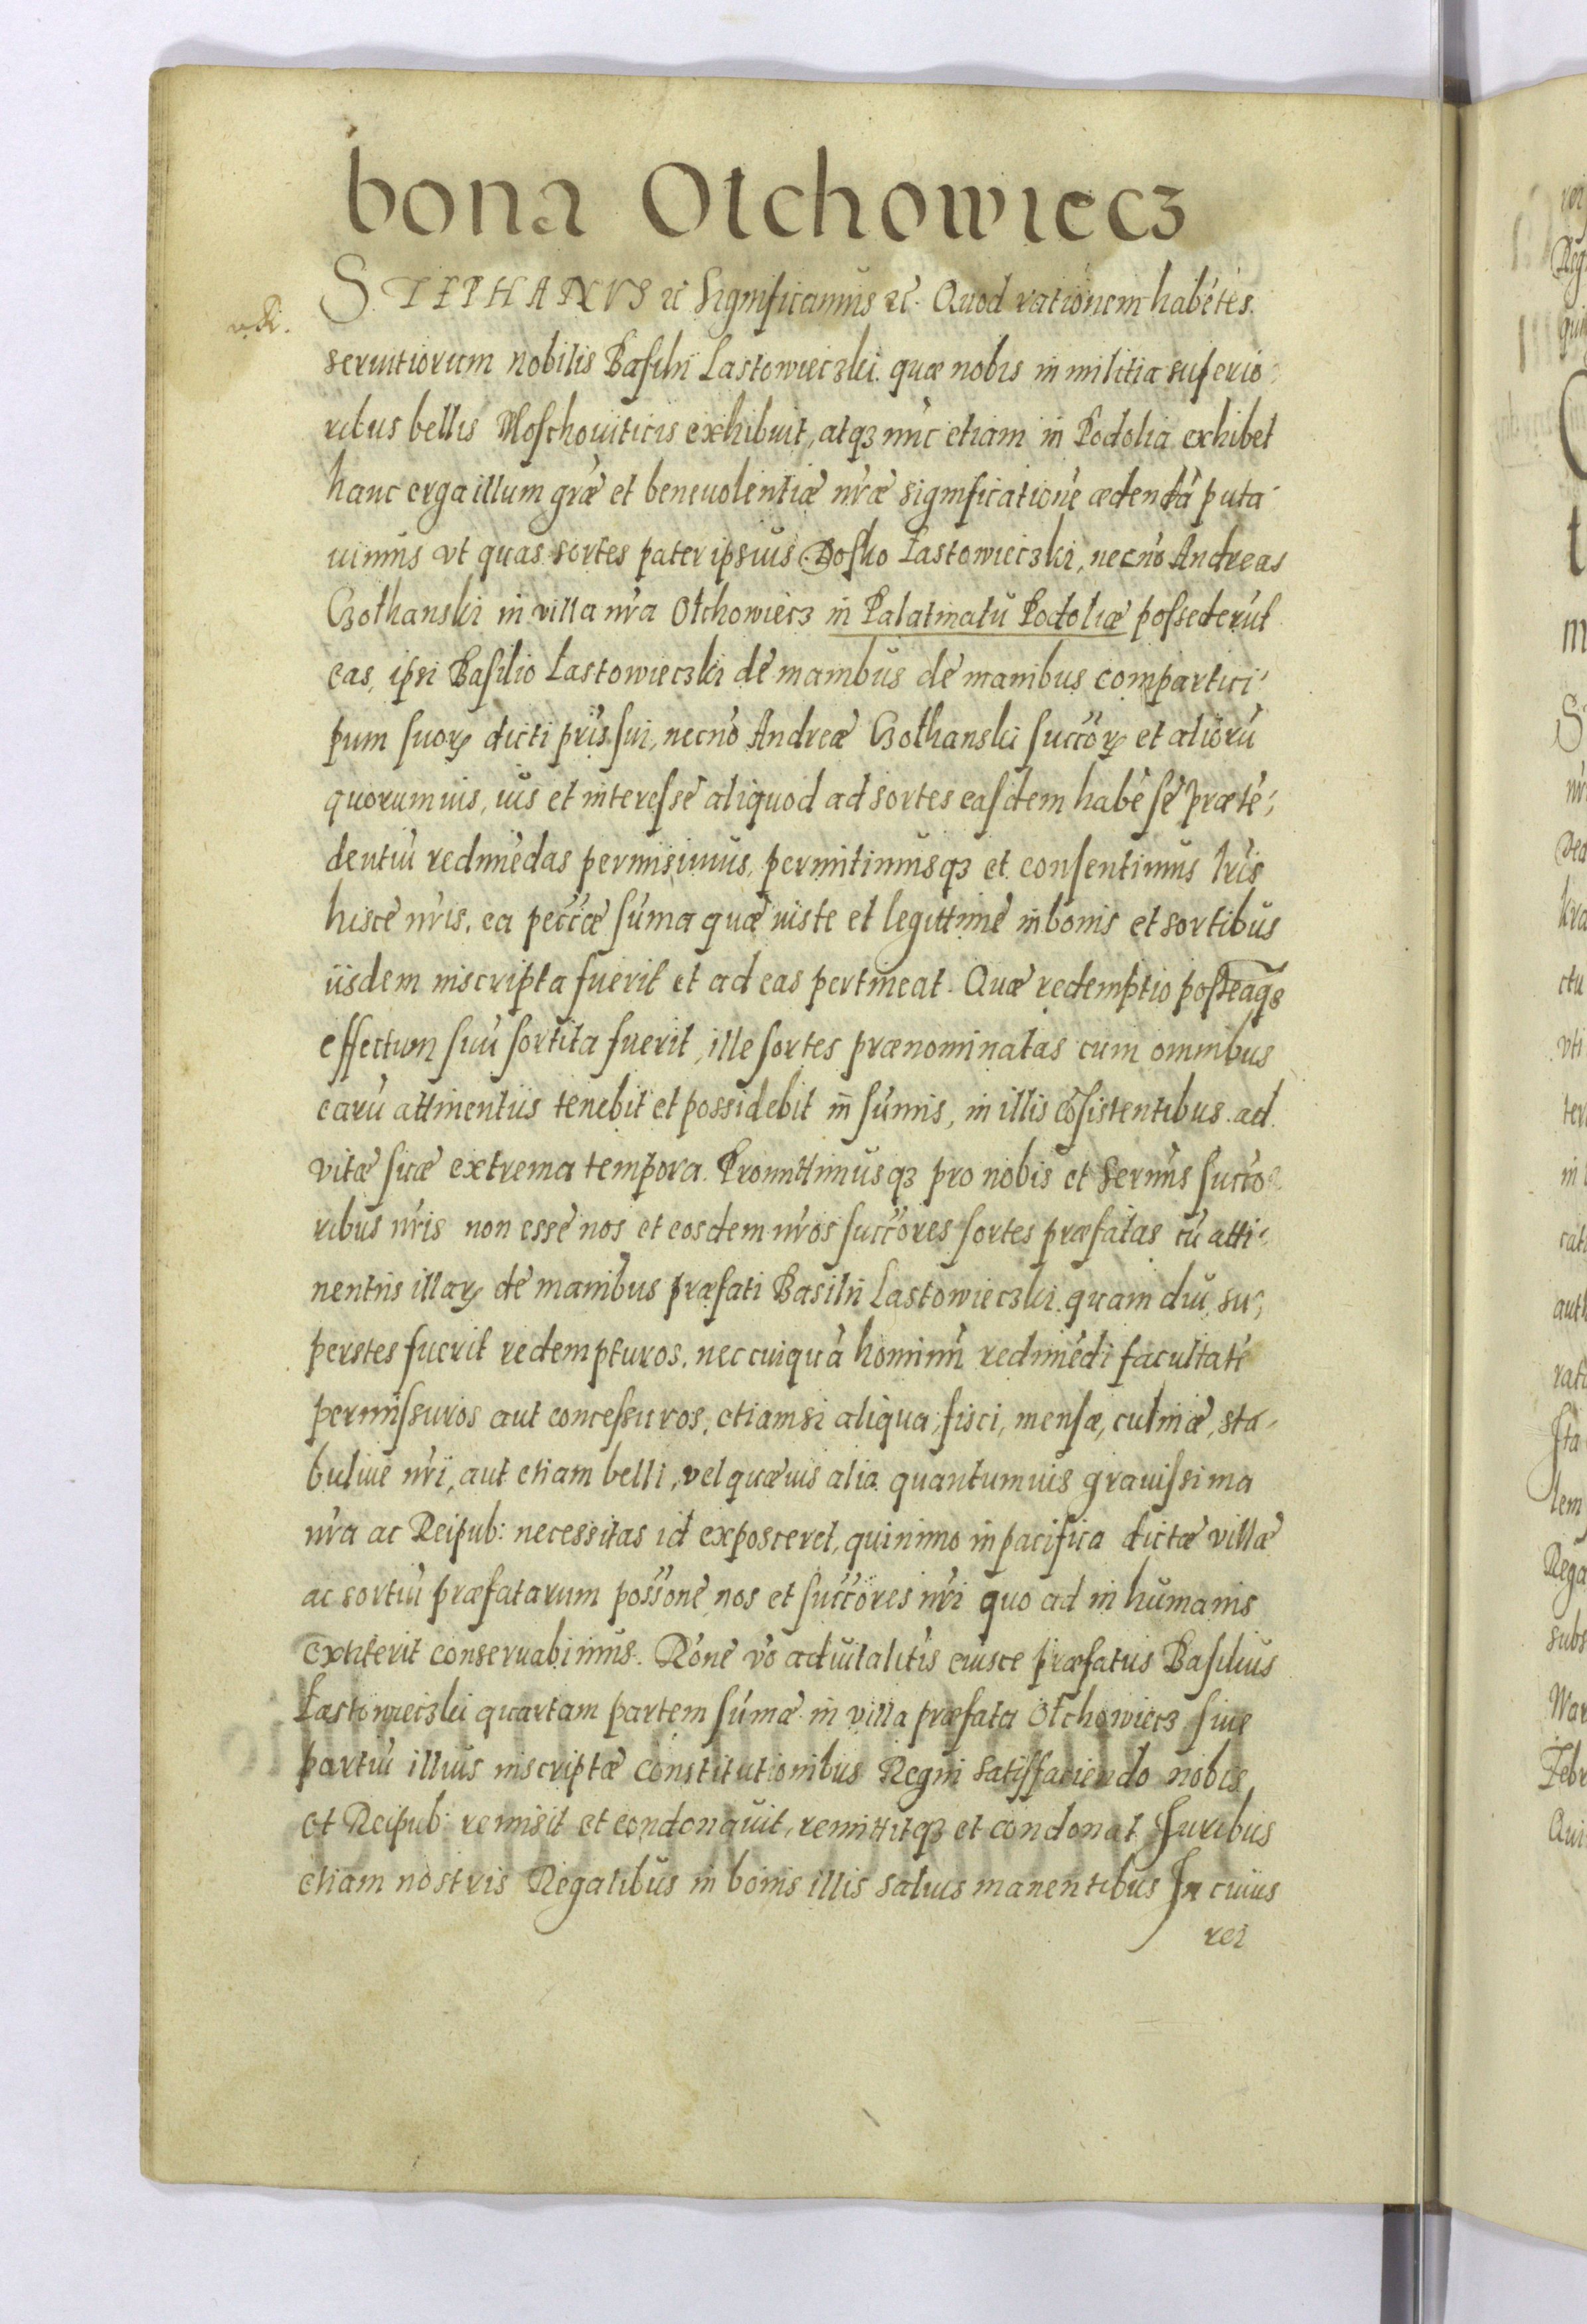 bona Otchowiecz
STEPHANVS etc Significamus etc. Quod rationem habētes
seruitiorum nobilis Basilii Lastowieczki quæ nobis in militia superio:
ribus bellis Moschouiticis exhibuit, atqȝ nūc etiam in Podolia exhibet
hanc erga illum gr̄æ et beneuolentiæ nr̄æ significationē ædendā puta
uimus vt quas sortes pater ipsius Dosko Lastowieczki, necnō Andreas
Gothanski in villa nr̄a Otchowiecz in Palatinatu Podoliæ possederūt
eas, ipsi Basilio Lastowieczki de manibus de manibus compartici
pum suorꝝ dicti pr̄is sui, necnō Andreæ Gothanski succōrꝝ et aliorū
quorumuis, ius et interesse aliquod ad sortes easdem habē se prætē
dentiū redimēdas permisimus, permitimusqȝ et consentimus lr̄is
hisce nr̄is, ea pecc̄æ sūma quæ iuste et legittime in bonis et sortibus
iisdem inscripta fuerit et ad eas pertineat. Quæ redemptio posteaqȝ
effectum suū sortita fuerit, ille sortes prænominatas cum omnibus
earū attinentiis tenebit et possidebit in sūmis, in illis cōsistentibus ad
vitæ suæ extrema tempora. Promittimusqȝ pro nobis et Serm̄is succo
ribus nr̄is non esse nos et eosdem nr̄os succōres sortes præfatas cū atti
nentiis illarꝝ de manibus præfati Basilii Lastowieczki quam diu su,
perstes fuerit redempturos, nec cuiquā hominū redimēdi facultatē
permissuros aut concessuros, etiamsi aliqua, fisci, mensæ, culinæ, sta
buliue nr̄i, aut etiam belli, vel quæuis alia quantumuis grauissima
nr̄a ac Reipub: necessitas id exposceret, quinimo in pacifica dictæ villæ
ac sortiū præfatarum poss̄one nos et succōres nr̄i quo ad in humanis
extiterit conseruabimus. Rōne vō aduitalit̄is eiusce præfatus Basilius
Lastowieczki quartam partem sūmæ in villa præfata Otchowiecz siue
partiū illius inscriptæ constitutionibus Regni satisfaciendo nobis
et Reipub: remisit et condonauit, remittitqȝ et condonat Juribus
etiam nostris Regalibus in bonis illis saluis manentibus In cuius
rei